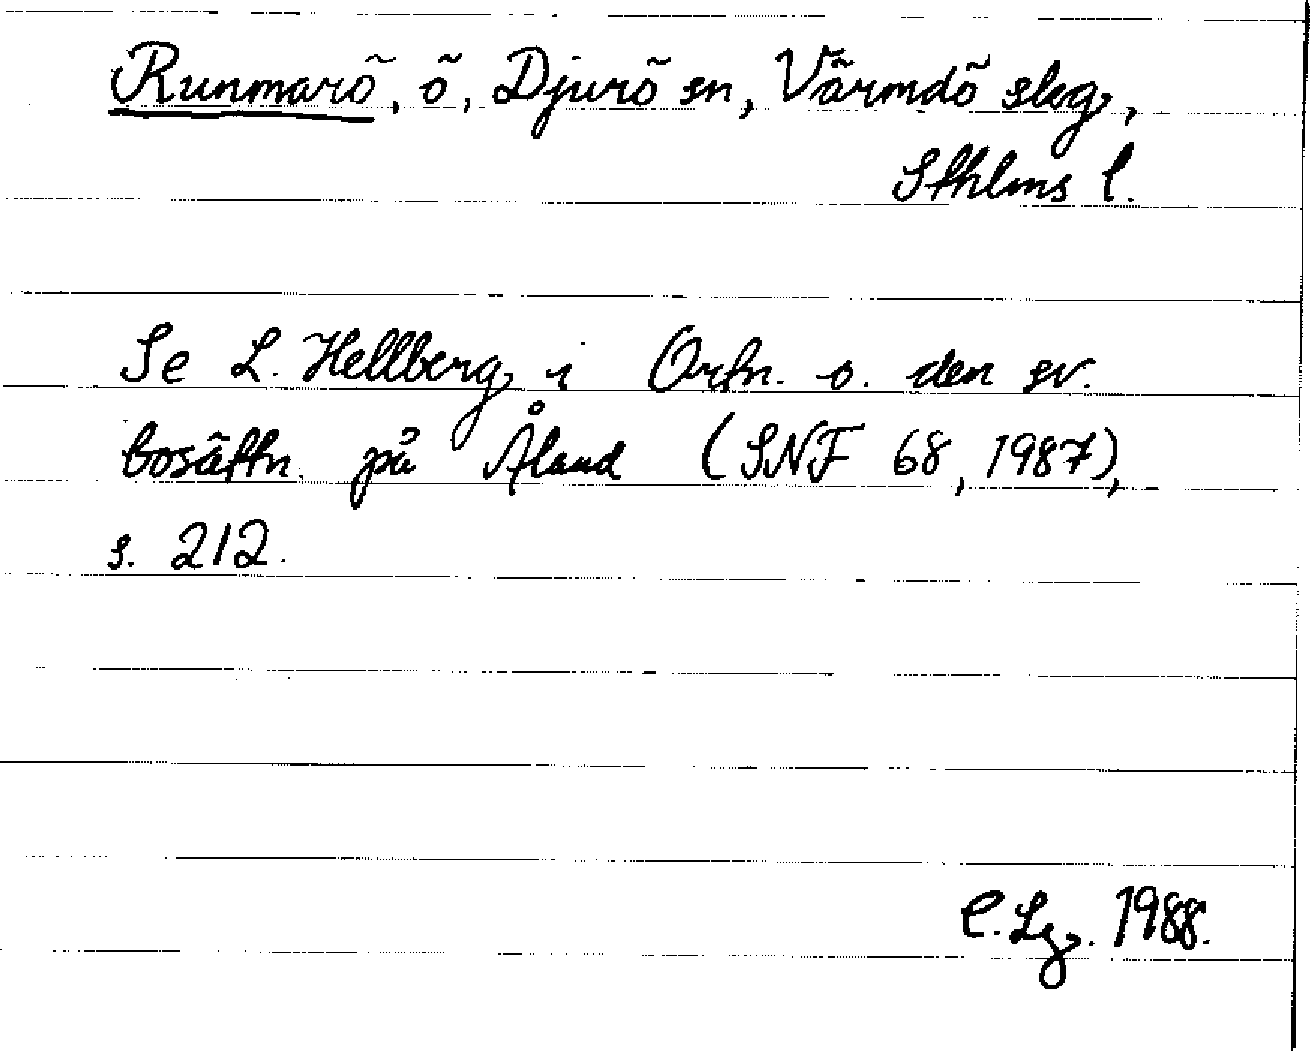 Runmarö, ö, Djurö sn, Värmdö slag,
Sthlms l.
Se L. Hellberg i Ortn. o. den sv.
bosättn. på Åland (SNF 68, 1987),
s. 212.
C. Lg. 1988.